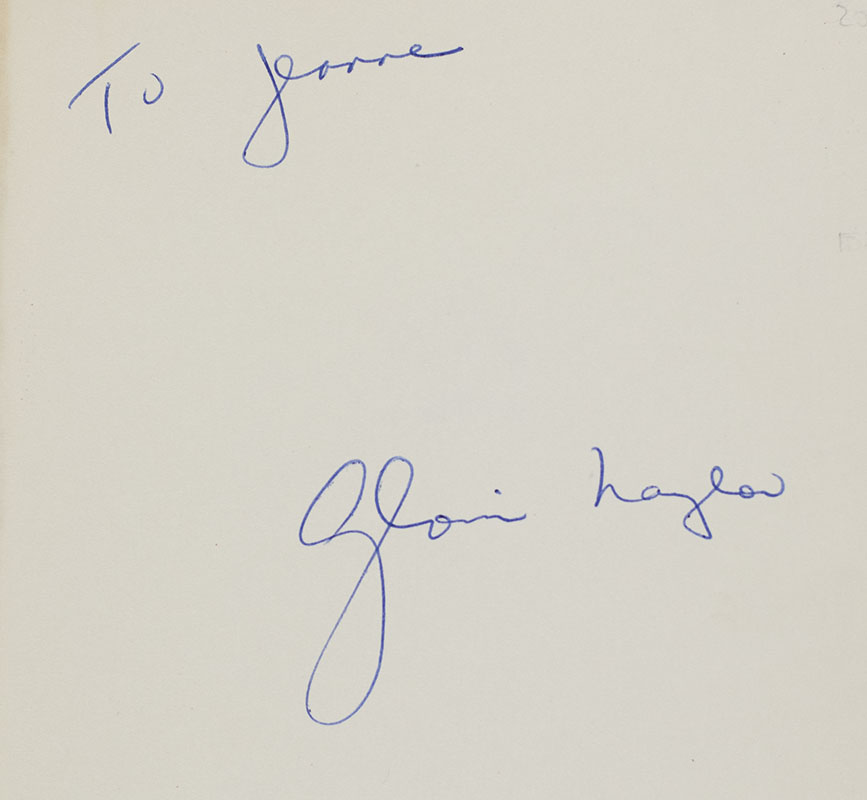 To Jeanne
Gloria Naylor